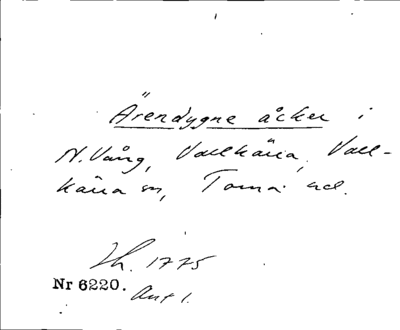 Ärendygne åcker i
N. Vång, Vallkärra, Vall-
kärra sn, Torna hd.
Lh. 1775
Nr 6220.
Ant 1.